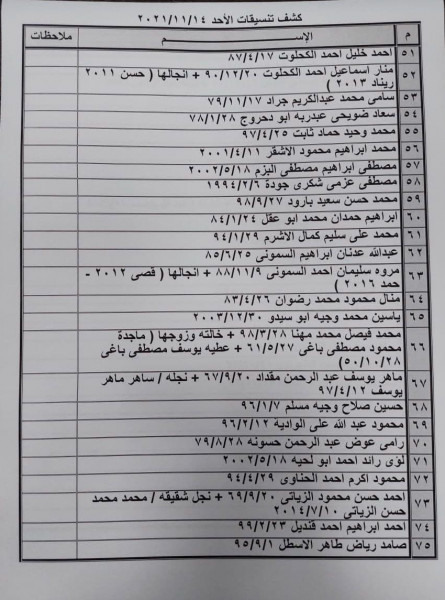 كشف تنسيقات الأحد ٢٠٢١/١١/١٤
م الإســـــم ملاحظات
٥١ احمد خليل احمد الكحلوت ٨٧/٤/١٧
٥٢ منار اسماعيل احمد الكحلوت ٩٠/١٢/٢٠ + انجالها ( حسن ٢٠١١
ريناد ٢٠١٣ )
٥٣ سامى محمد عبدالكريم جراد ٧٩/١١/١٧
٥٤ سعاد ضويحى عبدربه ابو دحروج ٧٨/١/٢٨
٥٥ محمد وحيد حماد ثابت ٩٧/٤/٢٥
٥٦ محمد ابراهيم محمود الاشقر ٢٠٠١/٤/١١
٥٧ مصطفى ابراهيم مصطفى البزم ٢٠٠٢/٥/١٨
٥٨ مصطفى عزمى شكرى جودة ١٩٩٤/٢/٦
٥٩ محمد حسن سعيد بارود ٩٨/٩/٢٧
٦٠ ابراهيم حمدان محمد ابو عقل ٨٤/١/٢٤
٦١ محمد على سليم كمال الاشرم ٩٤/١/٢٩
٦٢ عبدالله عدنان ابراهيم السمونى ٨٥/٦/٢٥
٦٣ مروه سليمان احمد السمونى ٨٨/١١/٩ + انجالها ( قصى ٢٠١٢ -
حمد ٢٠١٦ )
٦٤ منال محمود محمد رضوان ٨٣/٤/٢٦
٦٥ ياسين محمد وجيه ابو سيدو ٢٠٠٣/١٢/٣٠
٦٦ محمد فيصل محمد مهنا ٩٨/٣/٢٨ + خالته وزوجها ( ماجدة
محمود مصطفى باغى ٦١/٥/٢٧ + عطيه يوسف مصطفى باغى
٥٠/١٠/٢٨ )
٦٧ ماهر يوسف عبد الرحمن مقداد ٦٧/٩/٢٠ + نجله / ساهر ماهر
يوسف ٩٧/٤/١٢
٦٨ حسين صلاح وجيه مسلم ٩٦/١/٧
٦٩ محمود عبد الله على الوادية ٩٦/٢/١٢
٧٠ رامى عوض عبد الرحمن حسونه ٧٩/٨/٢٨
٧١ لؤى رائد احمد ابو لحيه ٢٠٠٢/٥/١٨
٧٢ محمود اكرم احمد الحناوى ٩٤/٤/٢٩
٧٣ احمد حسن محمود الزياتى ٦٩/٩/٢٠ + نجل شقيقه / محمد محمد
حسن الزياتى ٢٠١٤/٧/١٠
٧٤ احمد ابراهيم احمد قنديل ٩٩/٢/٢٣
٧٥ صامد رياض طاهر الاسطل ٩٥/٩/١